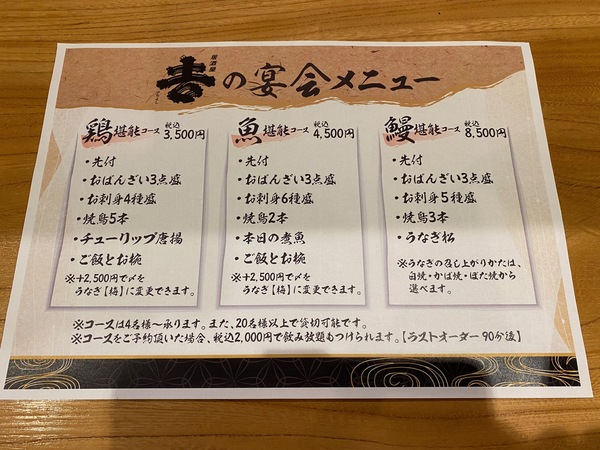 居酒屋
の宴会メニュー
鶏堪能コース 税込 3,500円
・先付
・おばんざい3点盛
・お刺身4種盛
・焼鳥5本
・チューリップ唐揚
・ご飯とお椀
※+2,500円で〆を
うなぎ【梅】に変更できます。
魚堪能コース 税込 4,500円
・先付
・おばんざい3点盛
・お刺身6種盛
・焼鳥2本
・本日の煮魚
・ご飯とお椀
※+2,500円で〆を
うなぎ【梅】に変更できます。
鰻堪能コース 税込 8,500円
・先付
・おばんざい3点盛
・お刺身5種盛
・焼鳥3本
・うなぎ松
※うなぎの召し上がりかたは、
白焼・かば焼・ぼた焼から
選べます。
※コースは4名様〜承ります。また、20名様以上で貸切可能です。
※コースをご予約頂いた場合、税込2,000円で飲み放題もつけられます。【ラストオーダー 90分後】